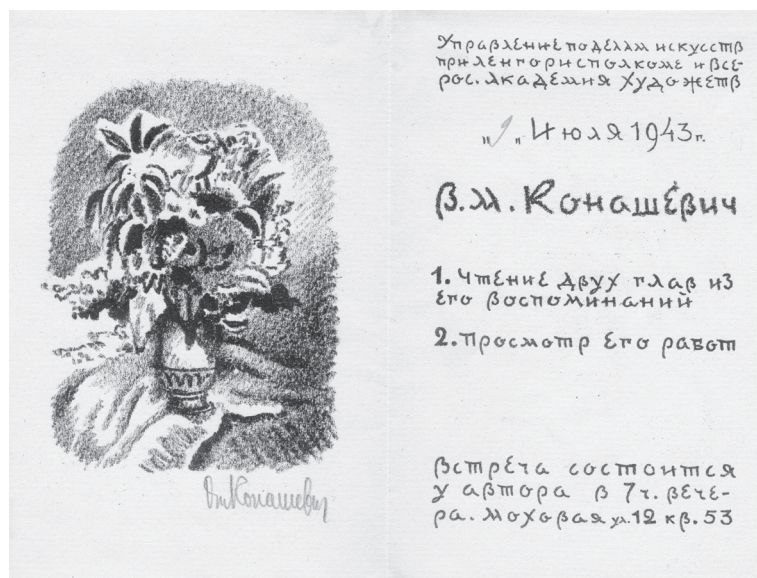 Управление по делам искусств
при Ленгорисполкоме и Все-
рос. Академия Художеств
„9„ Июля 1943 г.
В.М. Конашевич
1. Чтение двух глав из
его воспоминаний
2. Просмотр его работ
Встреча состоится
у автора в 7 ч. вече-
ра. Моховая ул. 12 кв. 53
Вл Конашевич